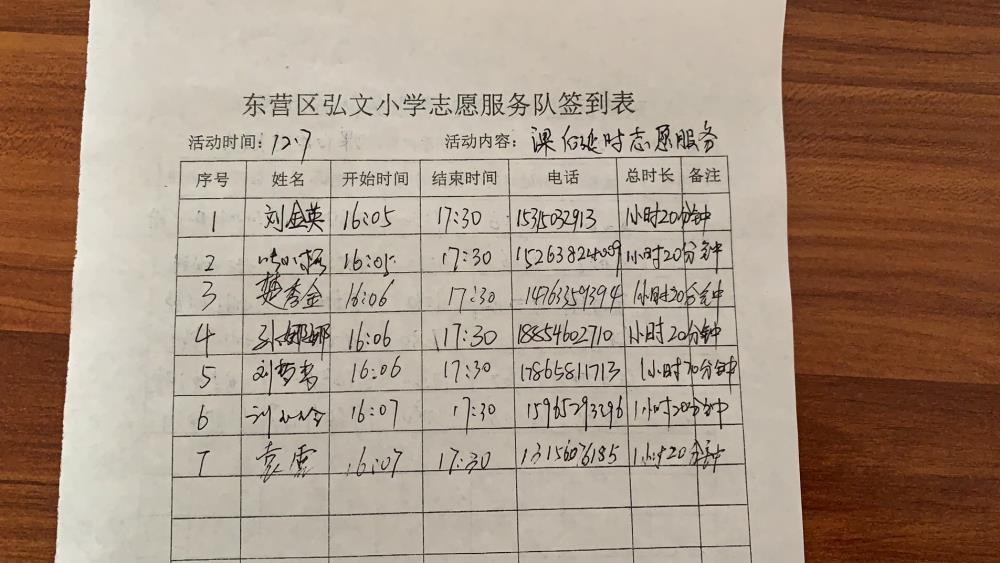 东营区弘文小学志愿服务队签到表
活动时间：12.7 活动内容：课后延时志愿服务
序号 姓名 开始时间 结束时间 电话 总时长 备注
1 刘金英 16:05 17:30 15315032913 1小时20分钟
2 16:05 17:30 1小时20分钟
3 楚秀金 16:06 17:30 14763359394 1小时20分钟
4 孙娜娜 16:06 17:30 18854602710 1小时20分钟
5 16:06 17:30 17865811713 1小时20分钟
6 16:07 17:30 15965293296 1小时20分钟
7 袁震 16:07 17:30 1小时20分钟